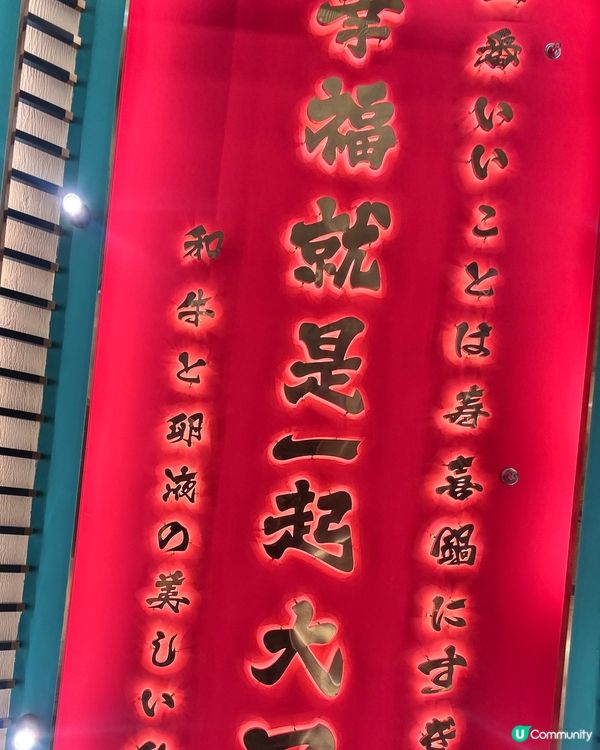 一番いいことは寿喜鍋にすぎ
幸福就是一起大口
和牛と卵液の美しい
U Community